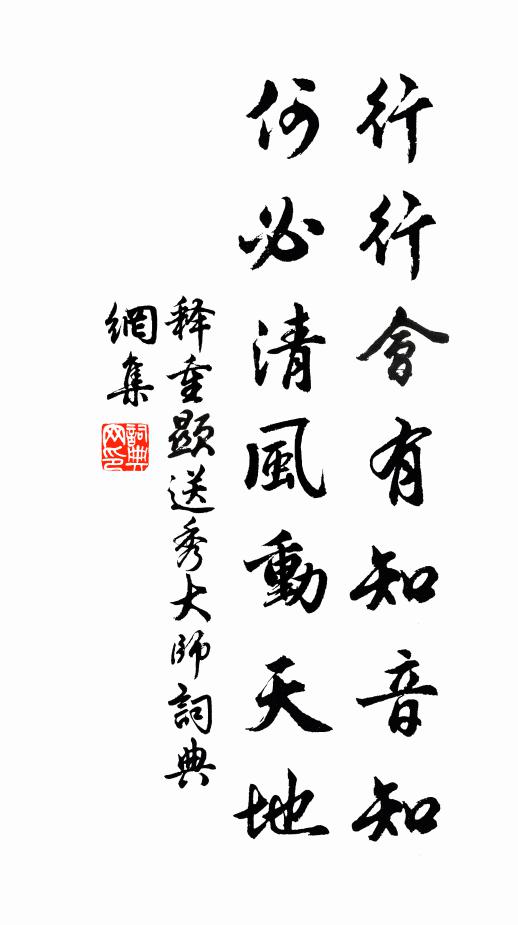 行行會有知音知
何必清風動天地
释重顯送秀大師詞典
網集
詞典網印